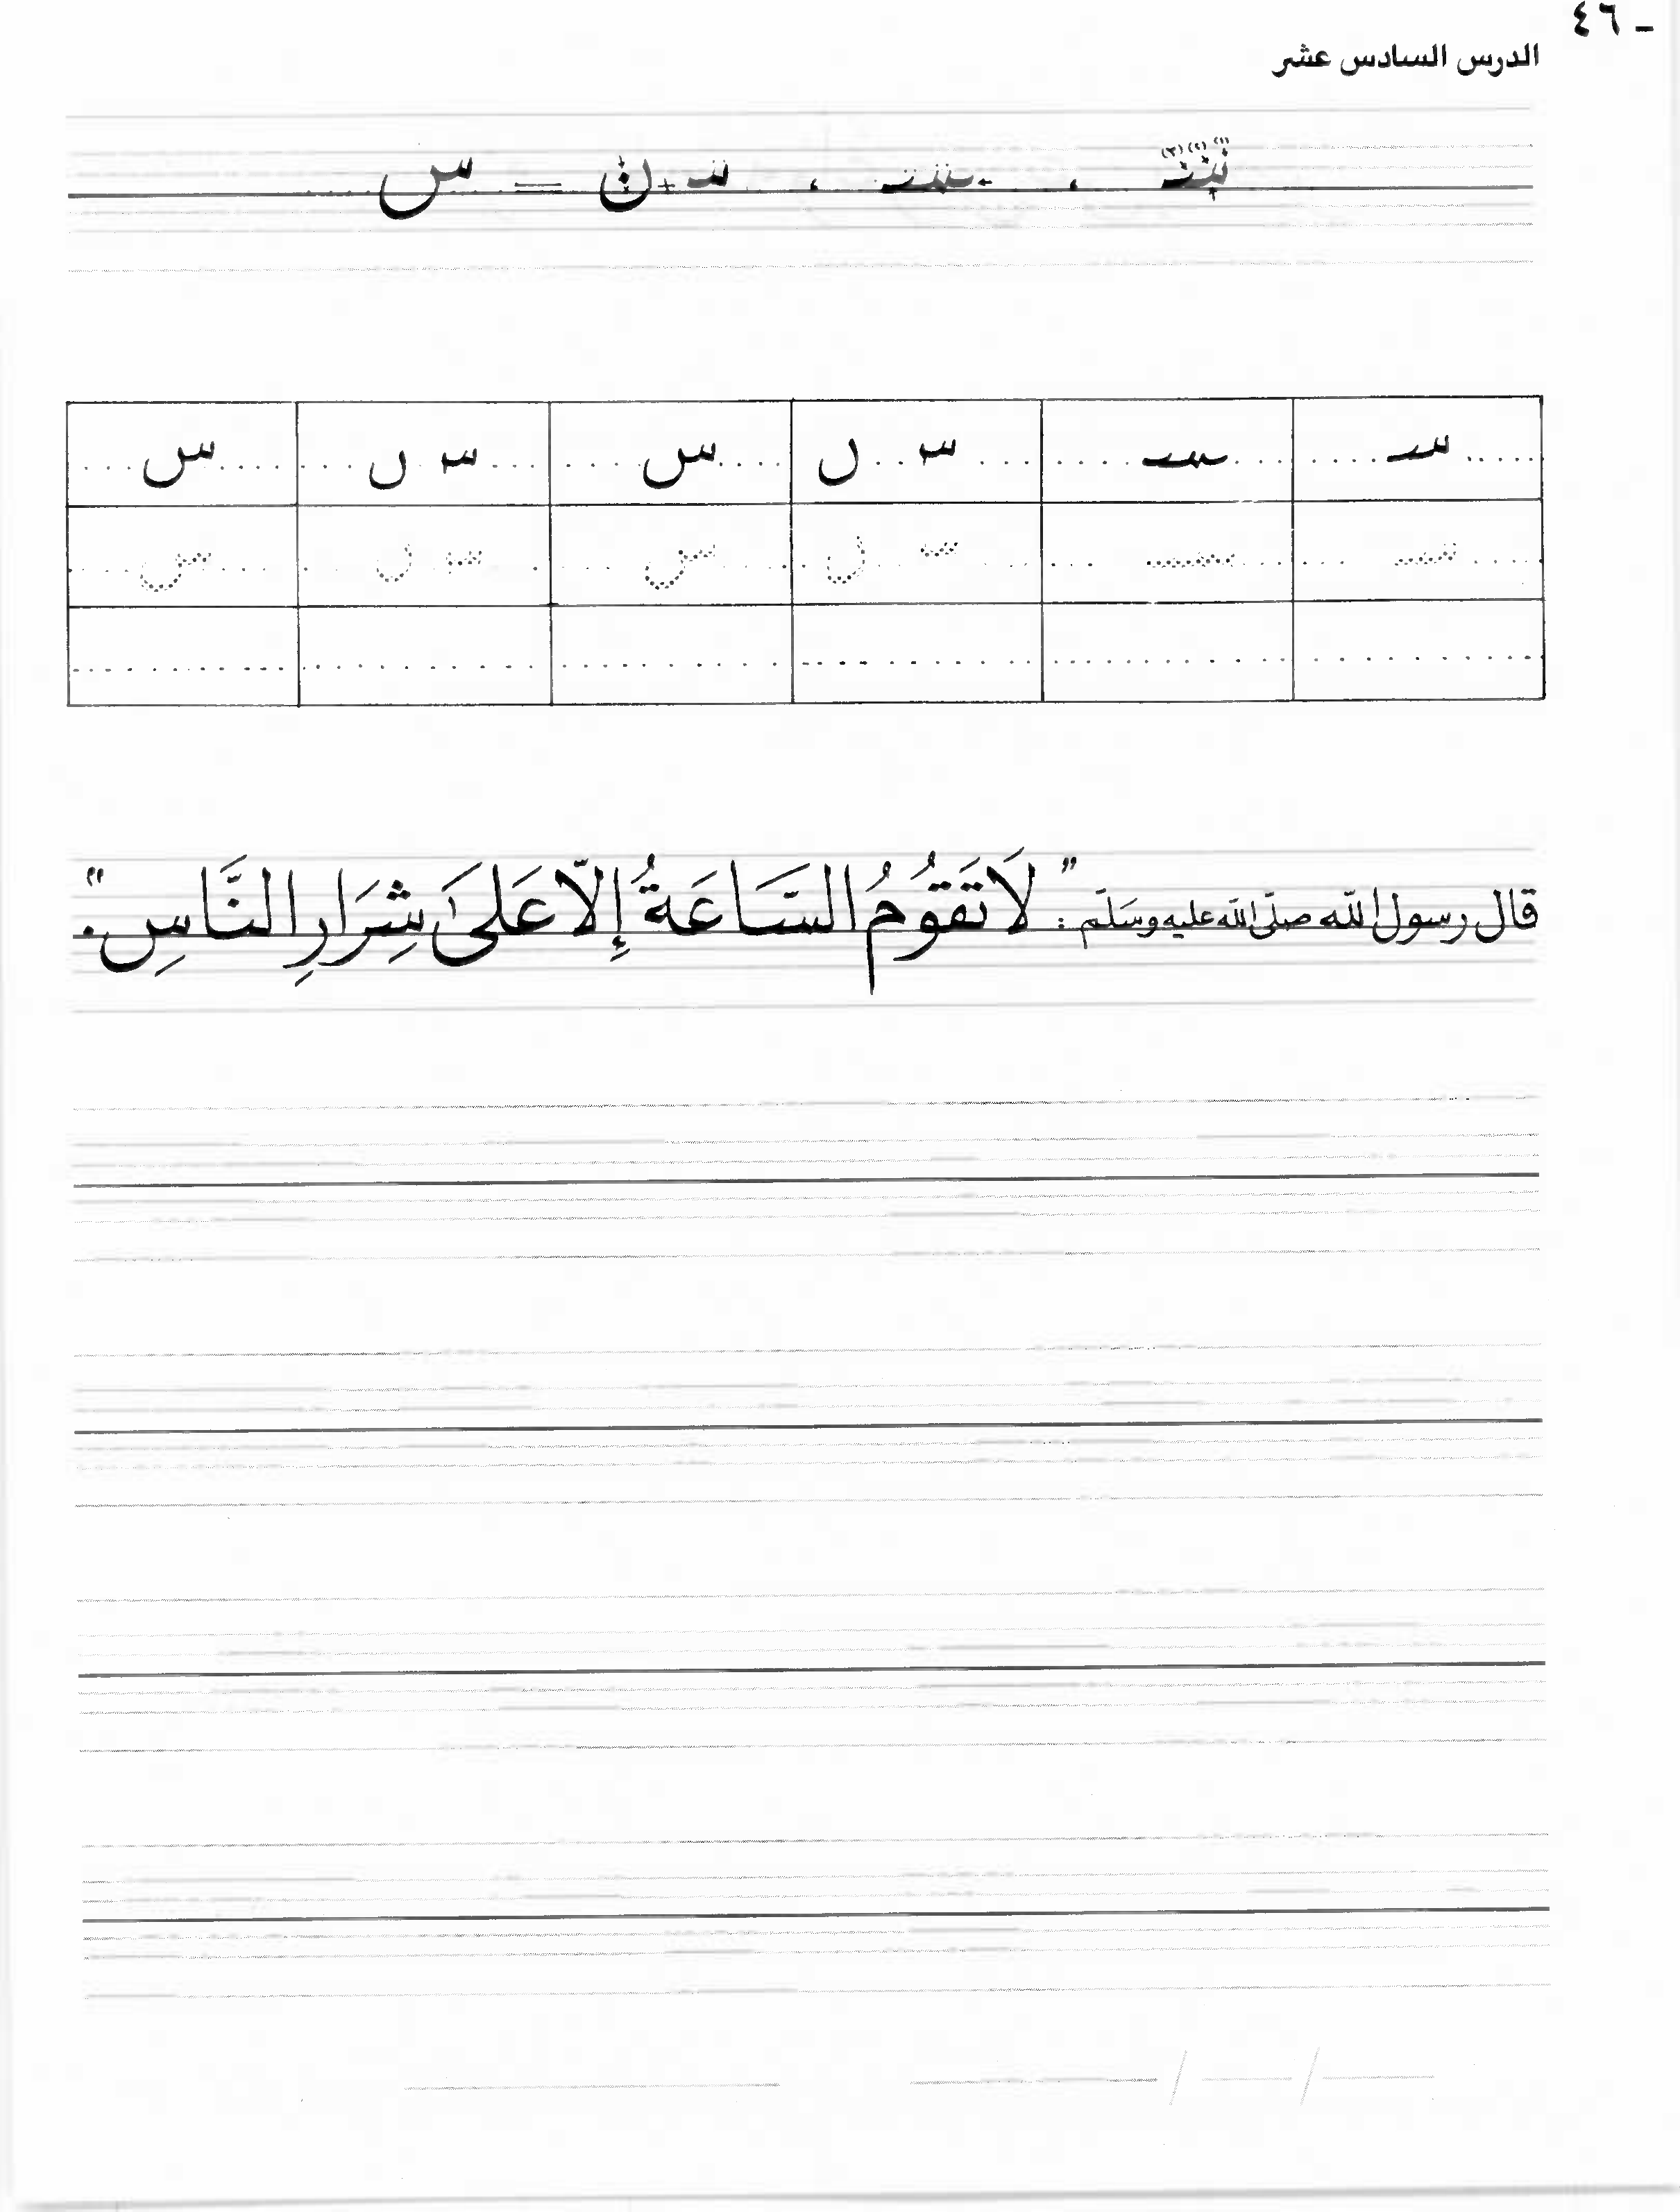 ٤٦ -
الدرس السادس عشر
سـ + ن = س
سـ ـسـ سـ ں س سـ ں س
سـ ـسـ سـ ں س سـ ں س
قال رسول الله صلّى الله عليه وسَلّم : " لَا تَقَوُمُ السَّاعَةُ إِلّا عَلىَٰ شِرَارِ النَّاسِ ".